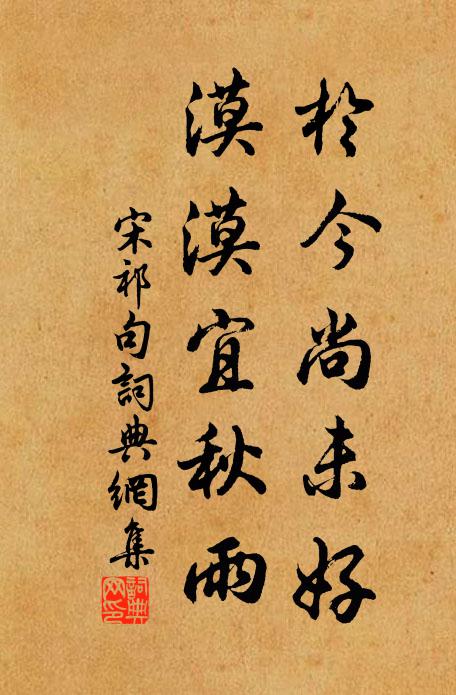 於今尚未好
漠漠宜秋雨
宋祁句詞典網集
詞典
网印